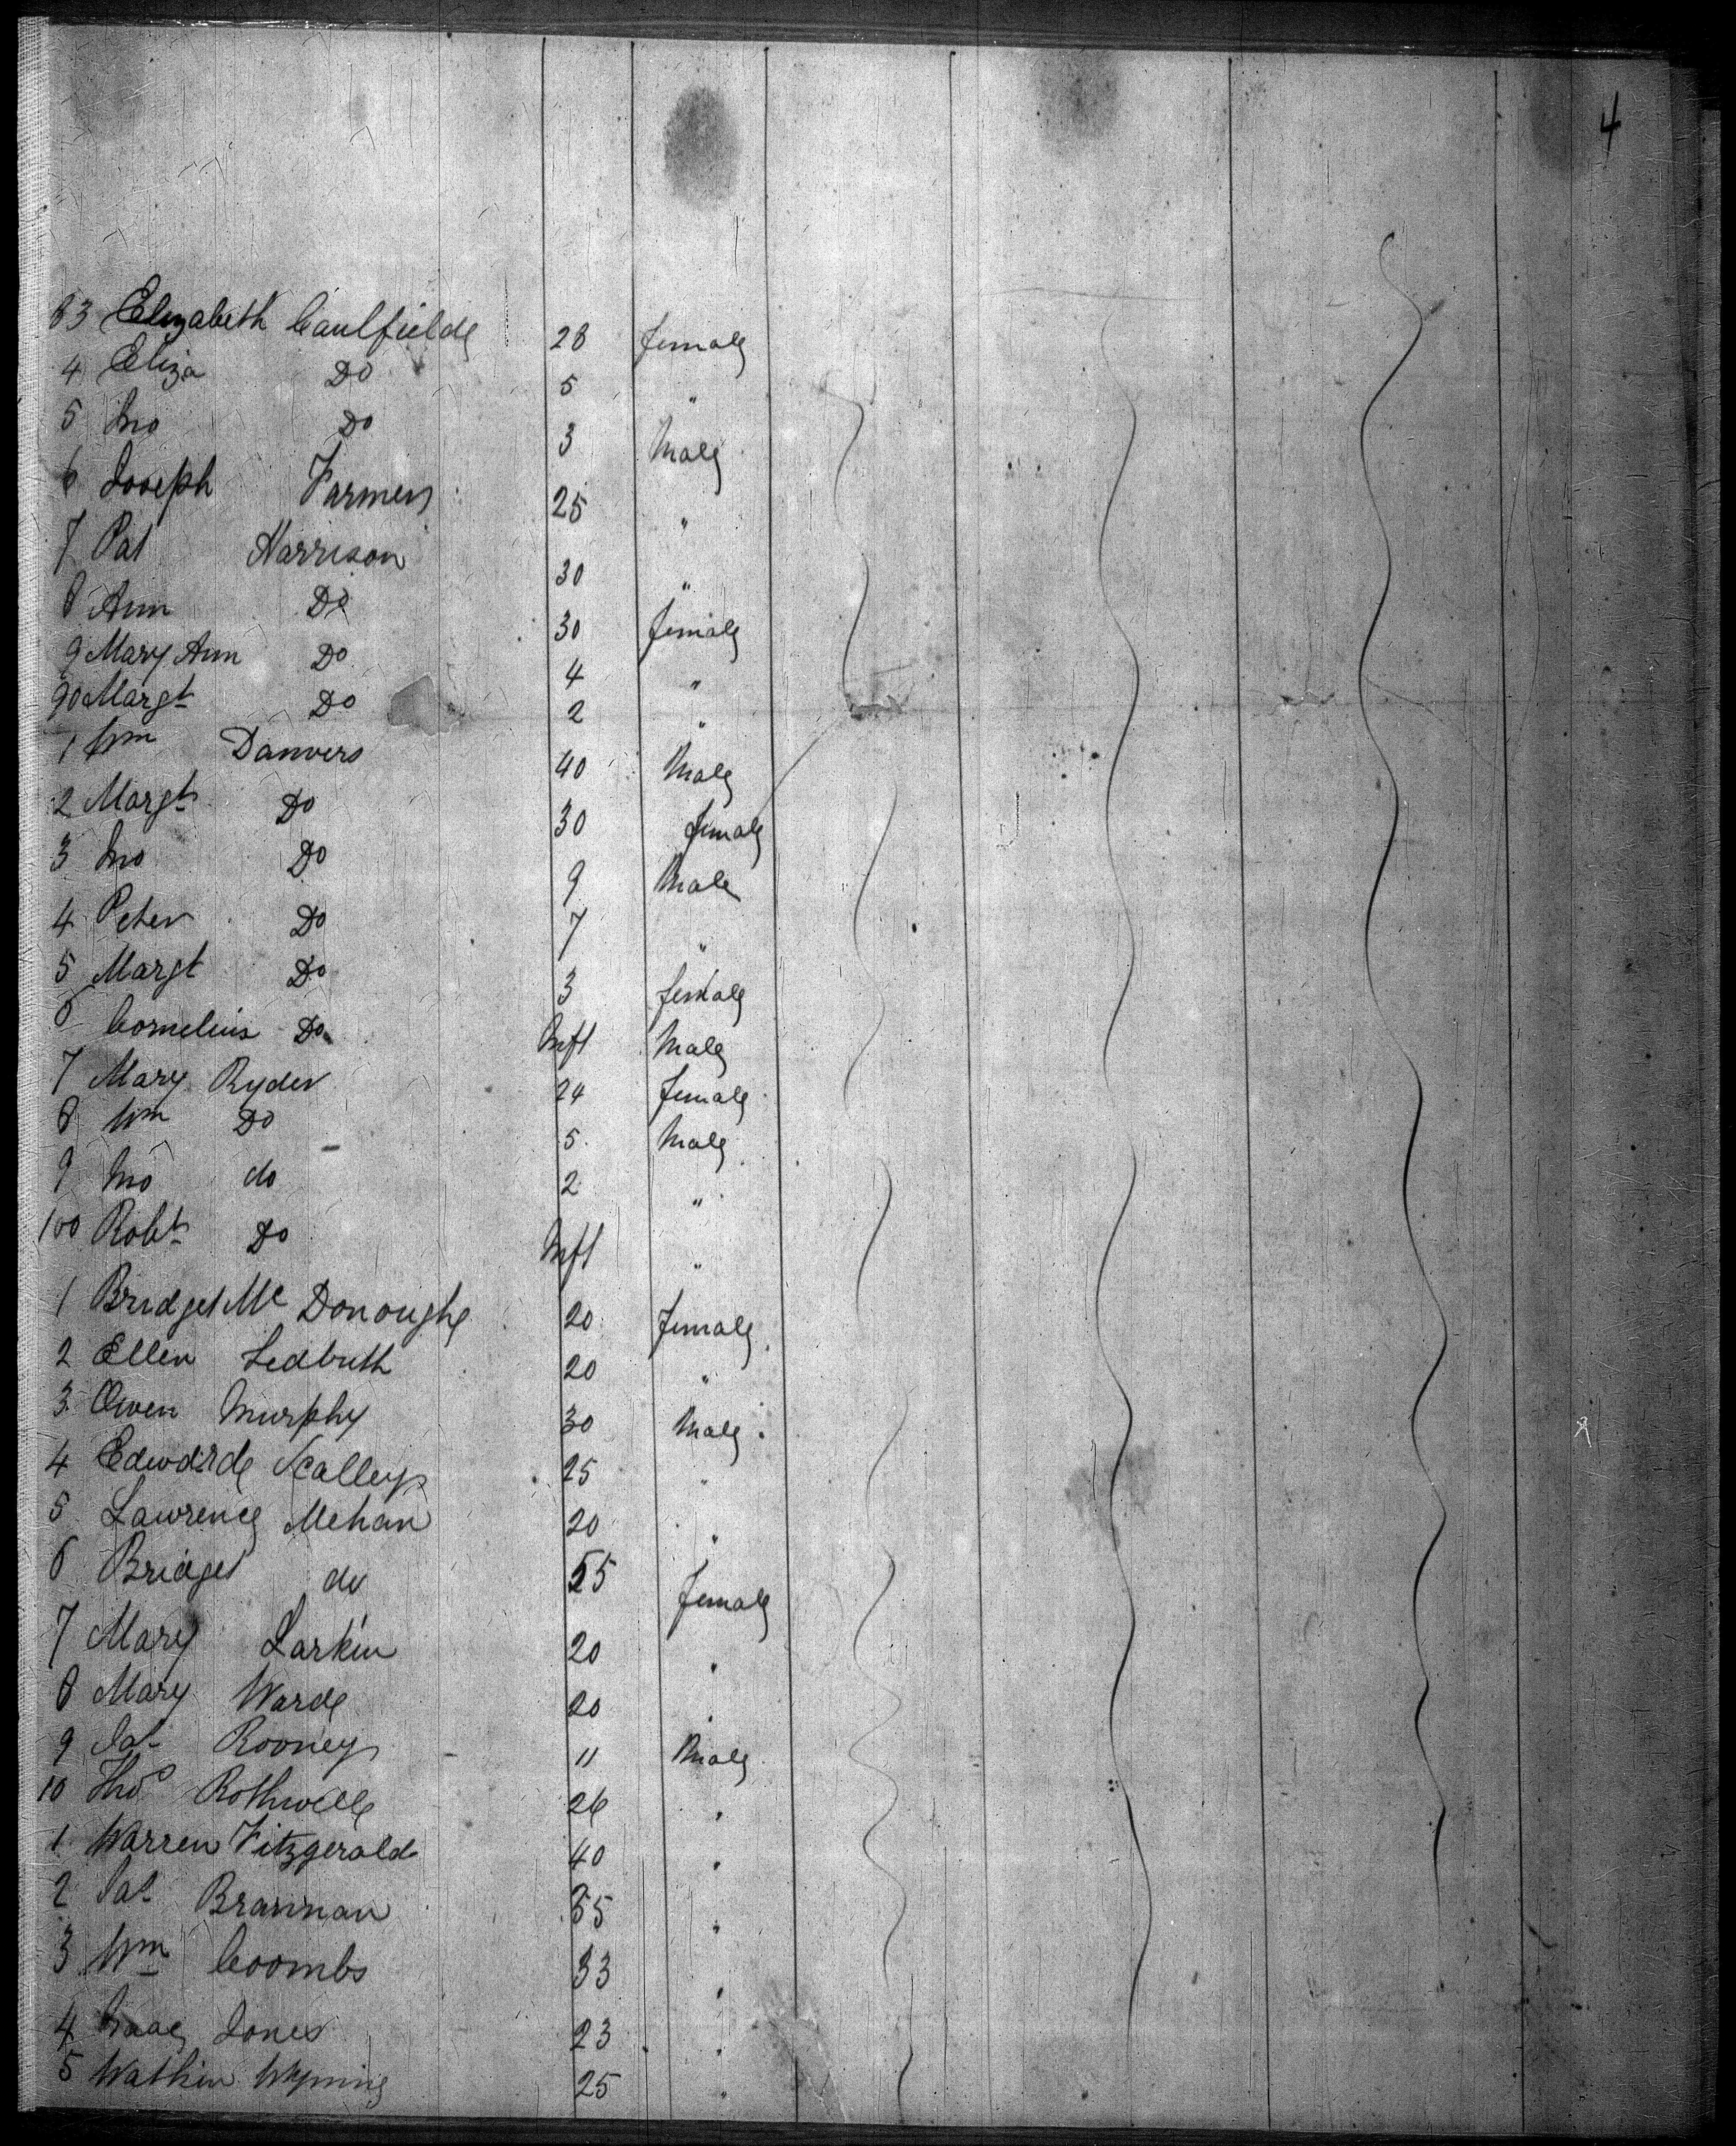 4
83 Elizabeth Caulfield 28 female
4 Eliza Do 5 "
5 Jno Do 3 Male
6 Joseph Farmer 25 "
7 Pat Harrison 30 "
8 Ann Do 30 female
9 Mary Ann Do 4 "
90 Margt Do 2 "
1 Wm Danvers 40 Male
2 Margt Do 30 female
3 Jno Do 9 Male
4 Peter Do 7 "
5 Margt Do 3 female
6 Cornelius Do Inft Male
7 Mary Ryder 24 female
8 Wm Do 5 Male
9 Jno do 2 "
100 Robt Do Inft "
1 Bridget Mc Donough 20 female
2 Ellen 20 "
3 Owen Murphy 30 Male
4 Edward Scalley 25 "
5 Lawrence Mehan 20 "
6 Bridget do 55 female
7 Mary Larkin 20 "
8 Mary Ward 20 "
9 Pat Rooney 11 Male
10 Thos Rothwell 26 "
1 Warren Fitzgerald 40 "
2 Pat Brannan 35 "
3 Wm Coombs 33 "
4 Isaac Jones 23 "
5 Watkin 25 "